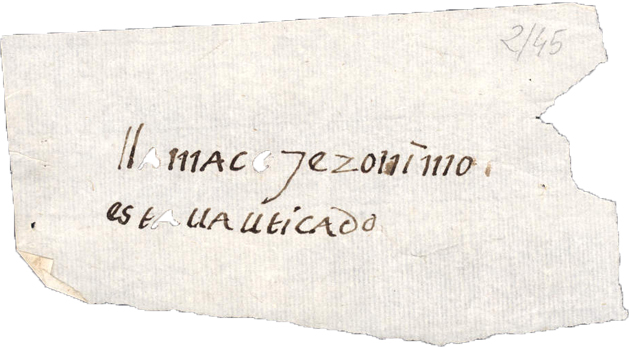 2/45
llamace jeronimo
esta uauticado